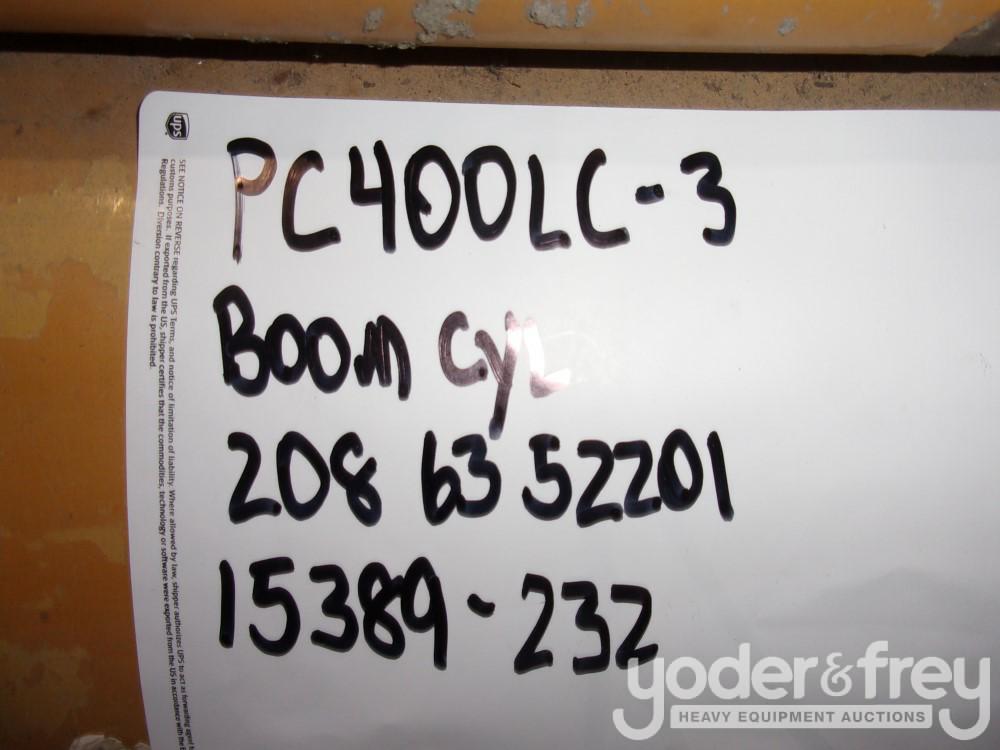 PC400LC-3
Boom CyL
208 63 52201
15389-232
ups
SEE NOTICE ON REVERSE regarding UPS Terms, and notice of limitation of liability. Where allowed by law, shipper authorizes UPS to act as forwarding agent
customs purposes. If exported from the US, shipper certifies that the commodities, technology or software were exported from the US in accordance with the
Regulations. Diversion contrary to law is prohibited.
yoder&frey
HEAVY EQUIPMENT AUCTIONS